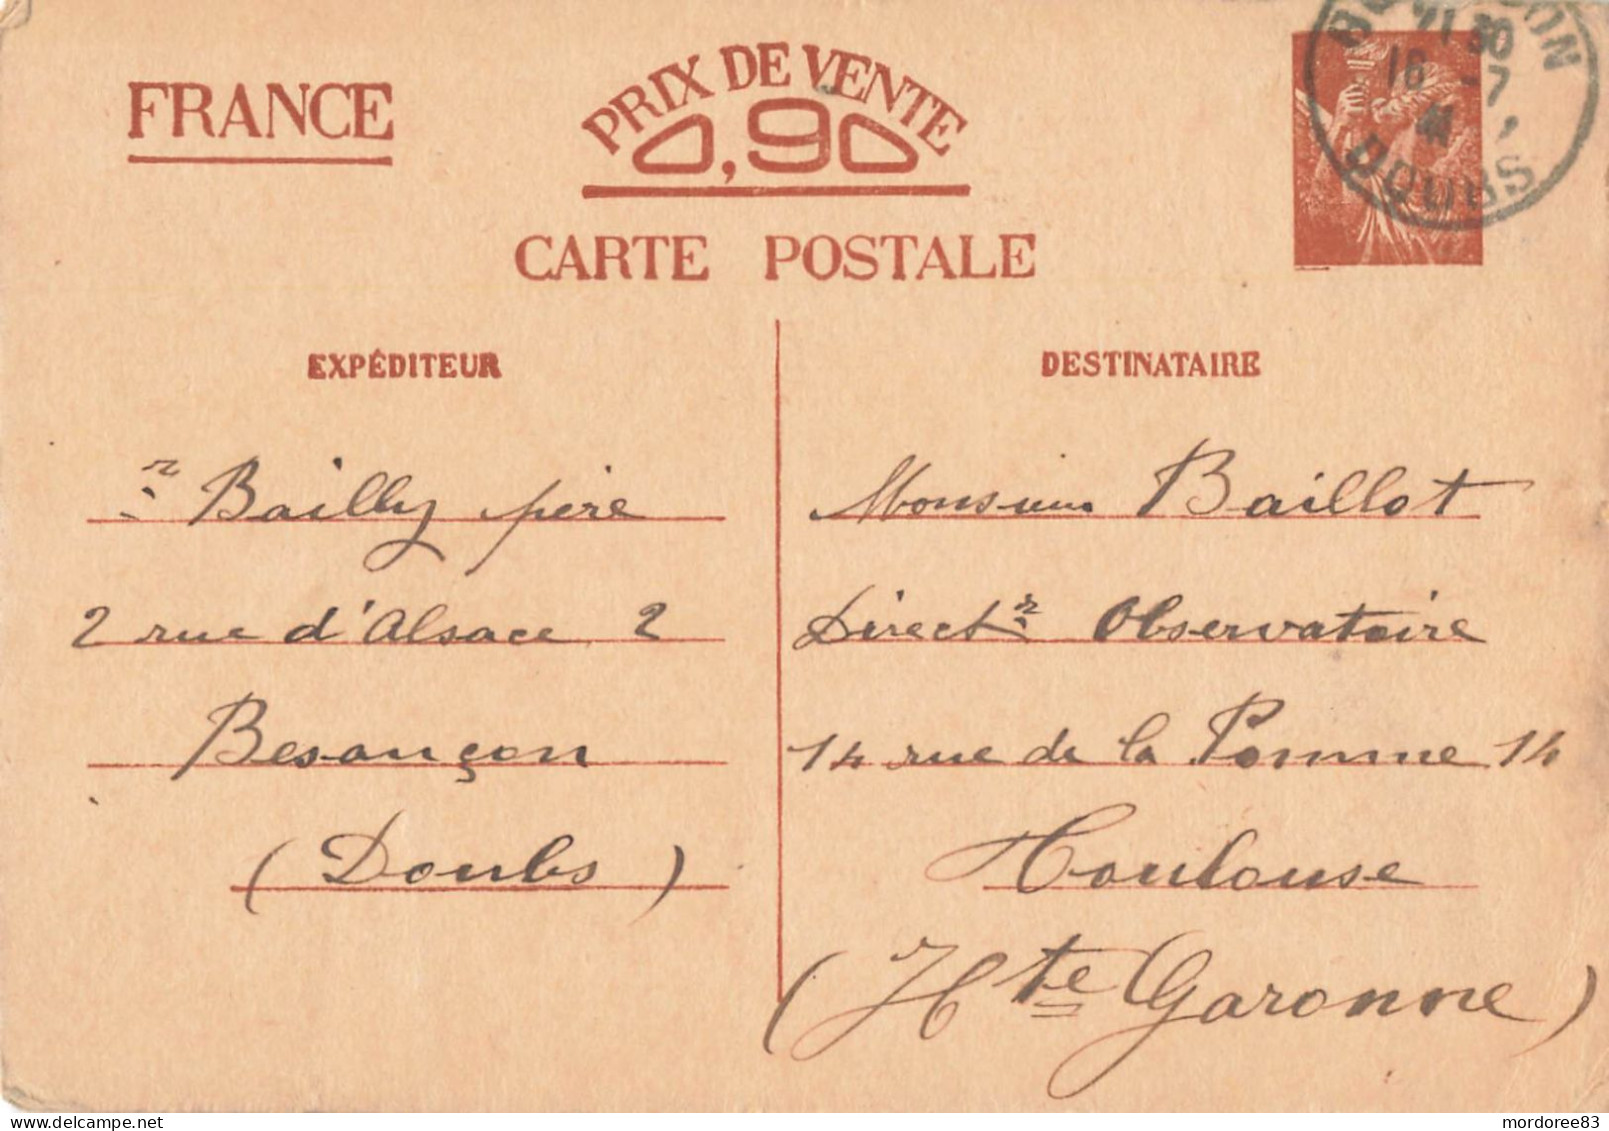 FRANCE
PRIX DE VENTE
0,90
CARTE POSTALE
18 -7
41
DOUBS
EXPÉDITEUR
r Bailly père
2 rue d'Alsace 2
Besançon
(Doubs)
DESTINATAIRE
Monsieur Baillot
Directr Observatoire
14 rue de la Pomme 14
Toulouse
(Hte Garonne)
mordoree83